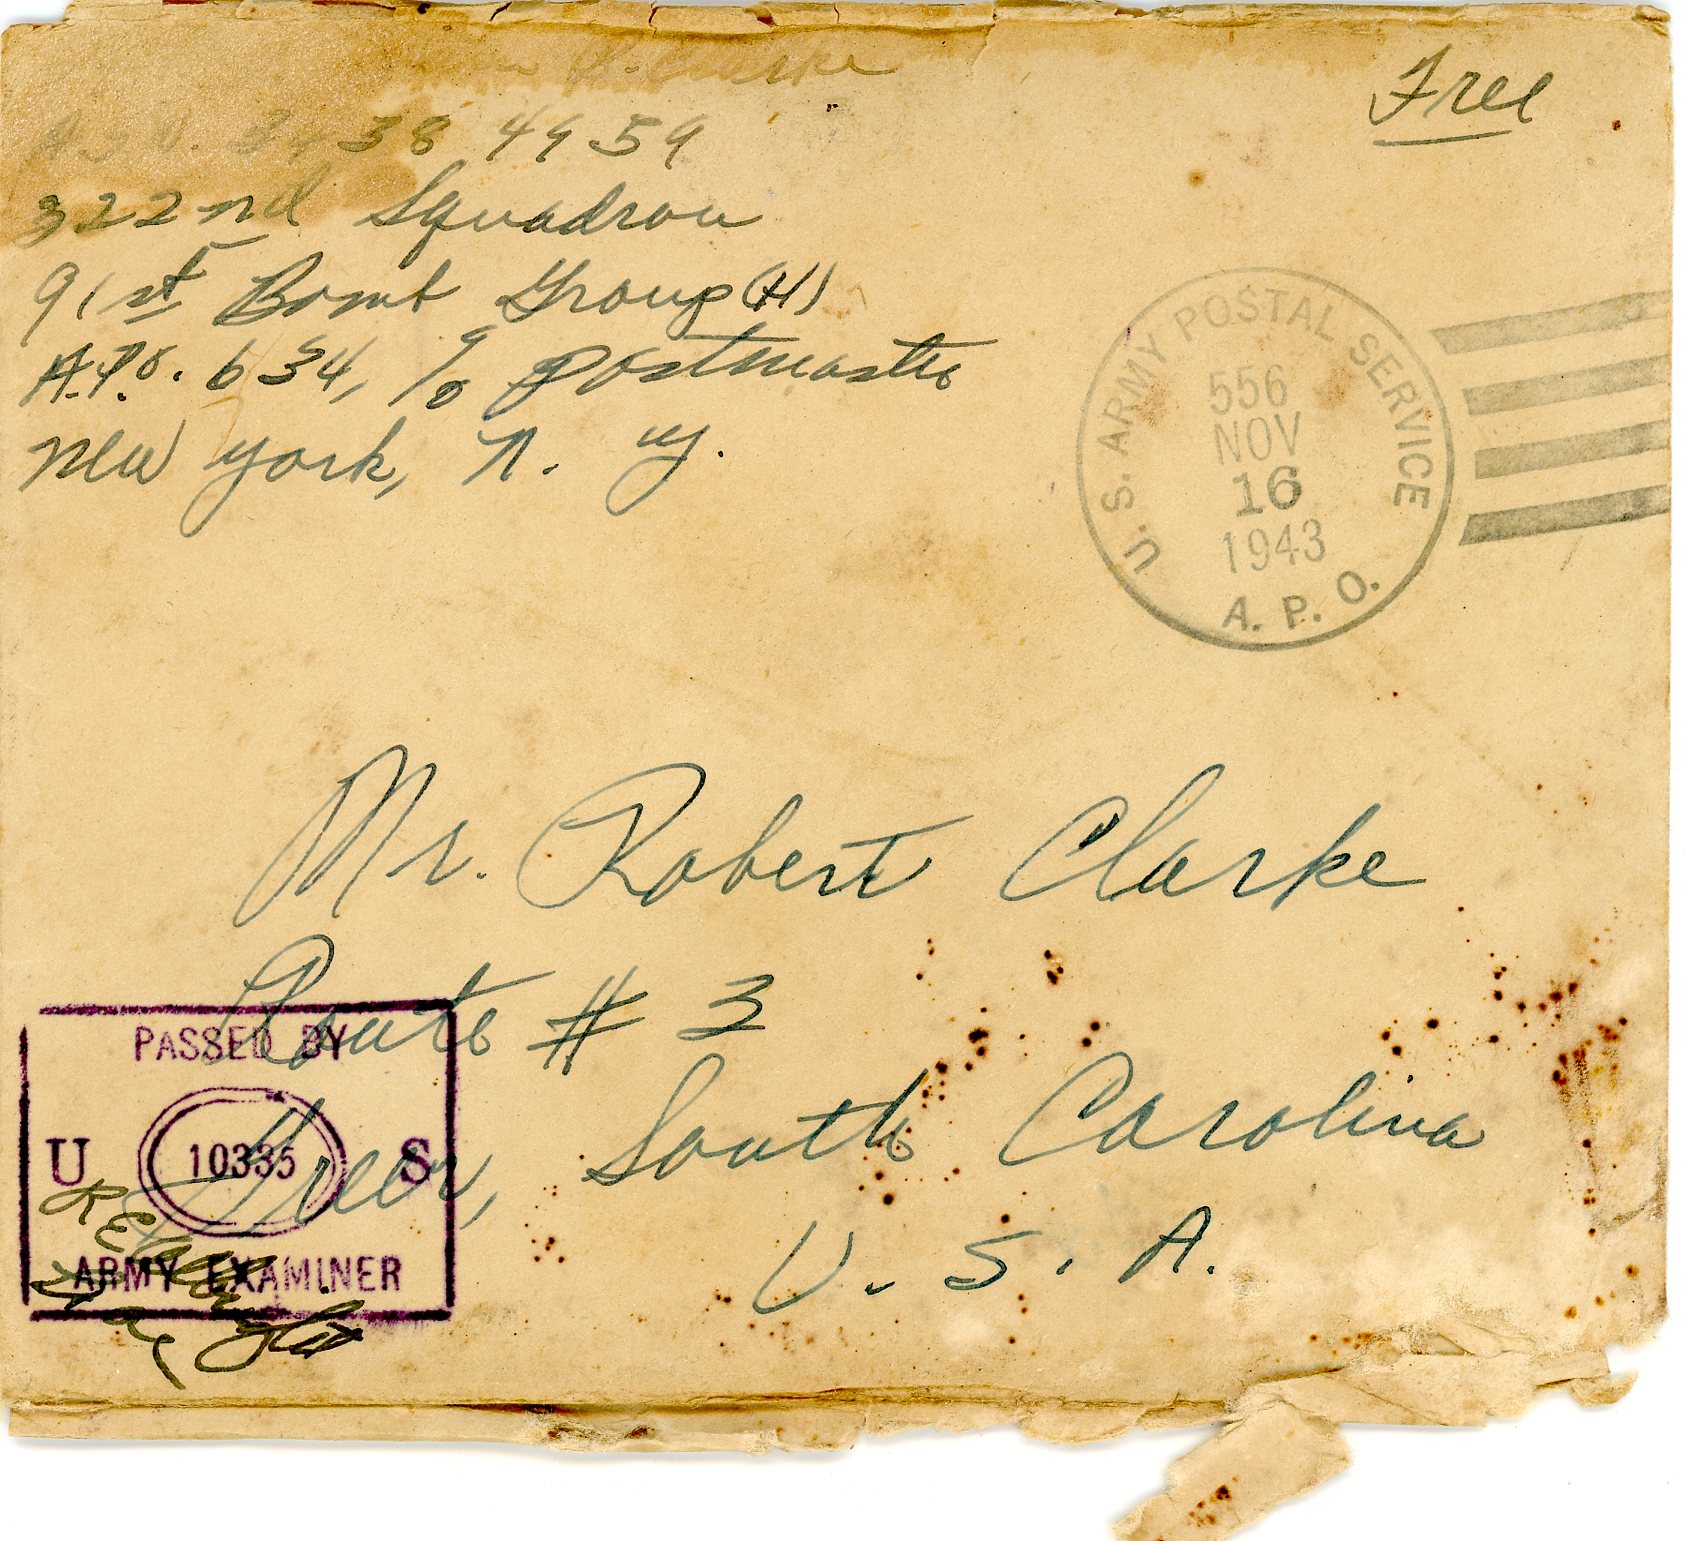 Clarke
Free
A.S.N. 34 38 49 59
322nd Squadron
91st Bomb Group (H)
A.P.O. 634, c/o Postmaster
New York, N. Y.
U. S. ARMY POSTAL SERVICE
556
NOV
16
1943
A. P. O.
Mr. Robert Clarke
Route # 3
Greer, South Carolina
U. S. A.
PASSED BY
U 10335 S
ARMY EXAMINER